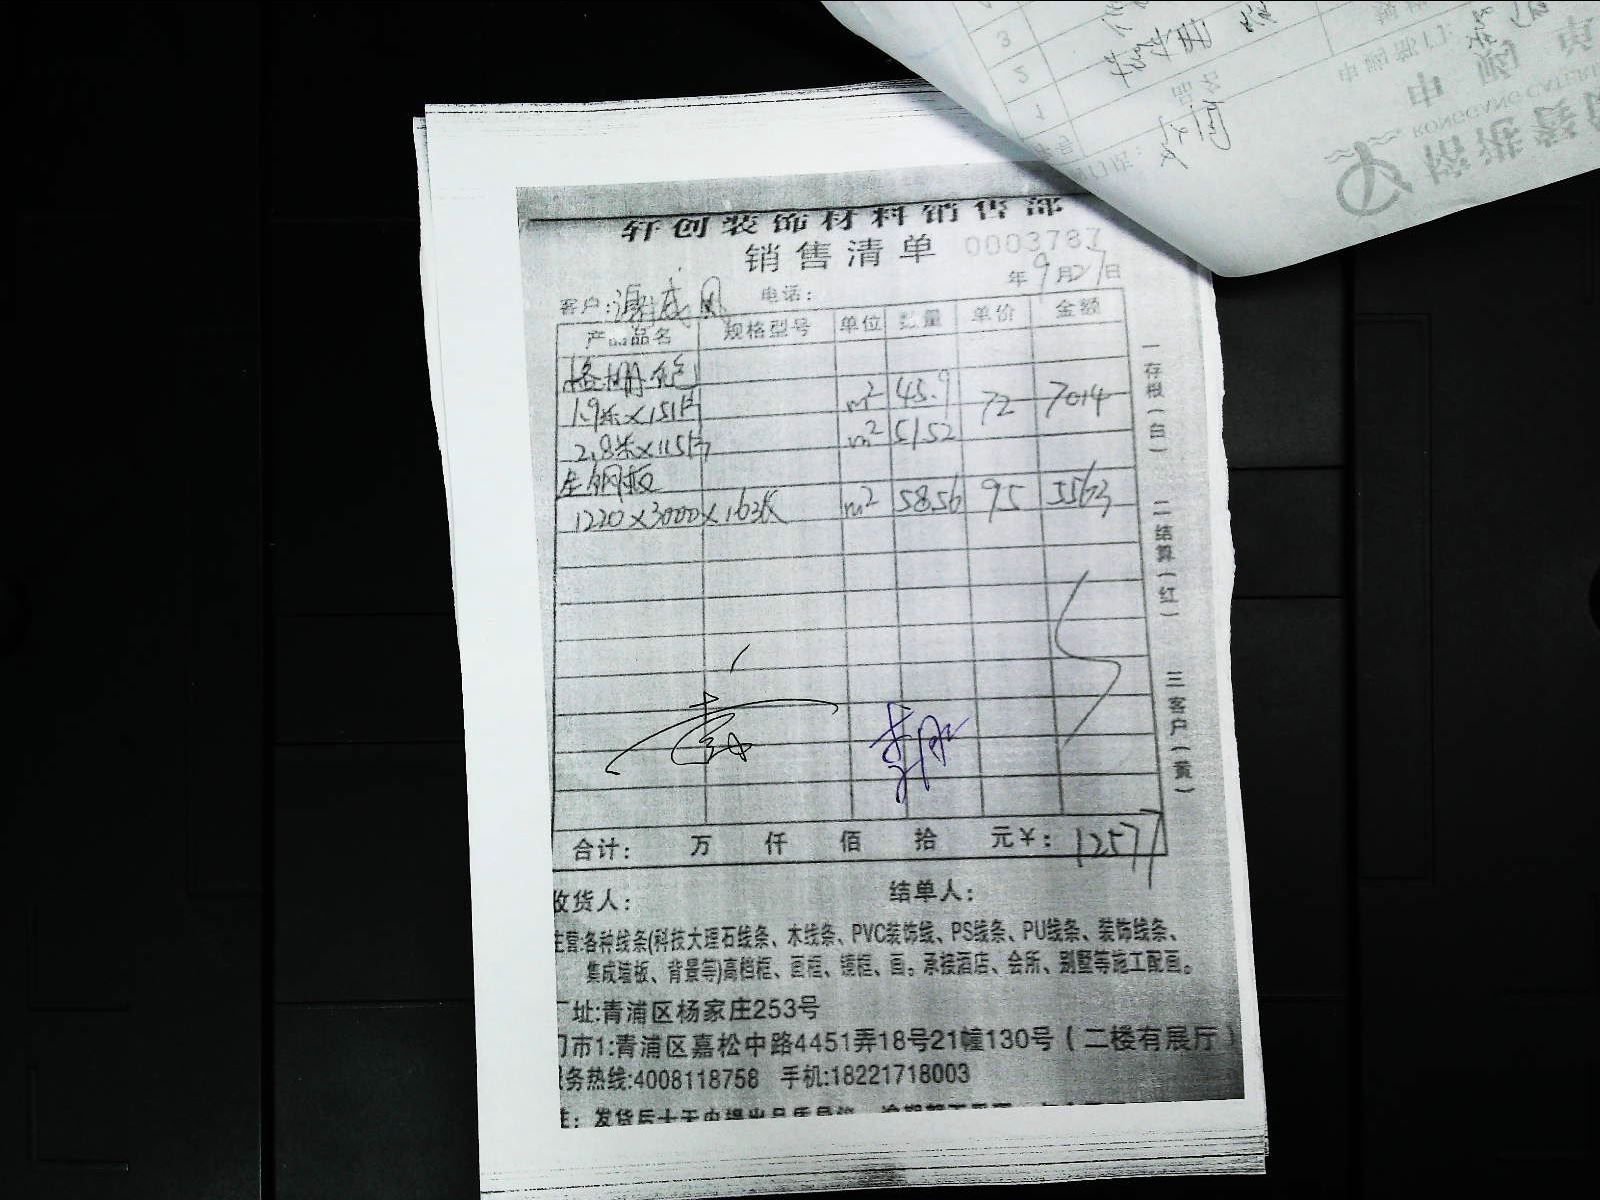 轩创装饰材料销售部
销售清单 0003787
年9月27日
客户: 电话:
产品品名 规格型号 单位 数量 单价 金额
格栅
1.9米×151片 m² 45.9 72 7014
2.8米×115片 m² 51.52
1220×3000×16张 m² 58.56 95 5563
合计: 万 仟 佰 拾 元¥: 12577
收货人: 结单人:
主营:各种线条(科技大理石线条、木线条、PVC装饰线、PS线条、PU线条、装饰线条、
集成墙板、背景等)高档框、画框、镜框、画。承接酒店、会所、别墅等施工配画。
厂址:青浦区杨家庄253号
门市1:青浦区嘉松中路4451弄18号21幢130号(二楼有展厅)
服务热线:4008118758 手机:18221718003
一存根(白)
二结算(红)
三客户(黄)